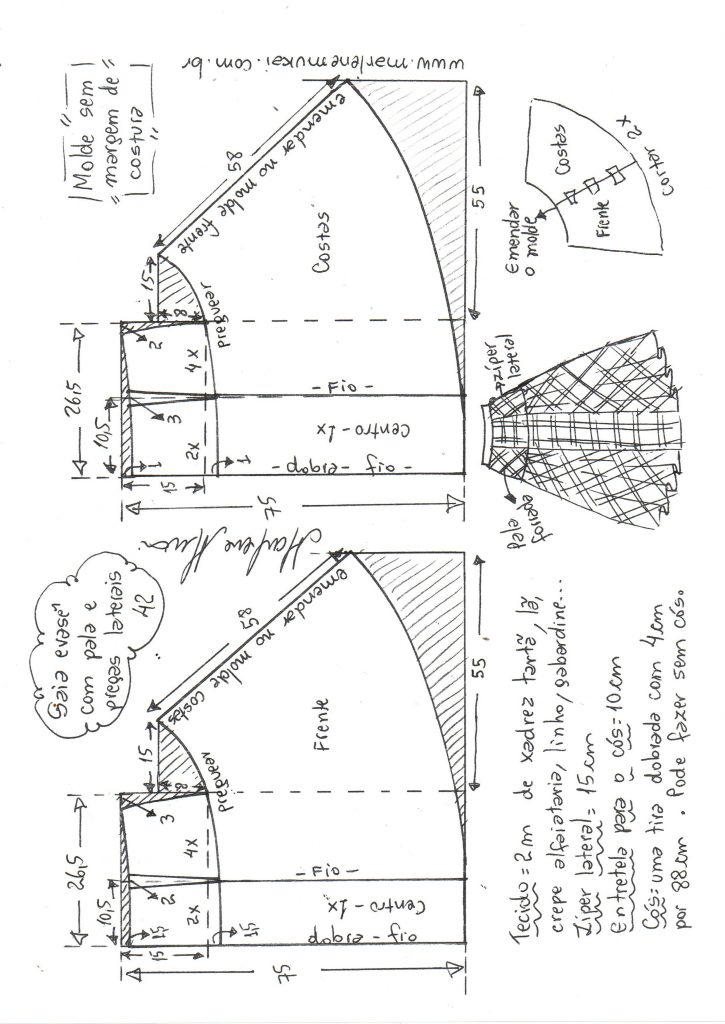 Saia evasê
com pala e
pregas laterais
42
26,5
10,5
15
1,5
1,5
2
3
2x
4x
15
8
Preguear
58
emendar no molde costas
Frente
- Fio -
Centro - 1x
dobra - fio
75
55
"Molde sem
margem de
costura"
26,5
10,5
15
1
1
3
2
2x
4x
15
8
Preguear
58
emendar no molde frente
Costas
- Fio -
Centro - 1x
dobra - fio -
75
55
www.marlenemukai.com.br
Tecido = 2m de xadrez tartã, lã,
crepe alfaiataria, linho, gabardine...
Zíper lateral = 15cm
Entretela para o cós = 10cm
Cós: uma tira dobrada com 4cm
por 88cm. Pode fazer sem cós.
pala
forrada
zíper
lateral
Emendar
o molde
Frente
Costas
Cortar 2x